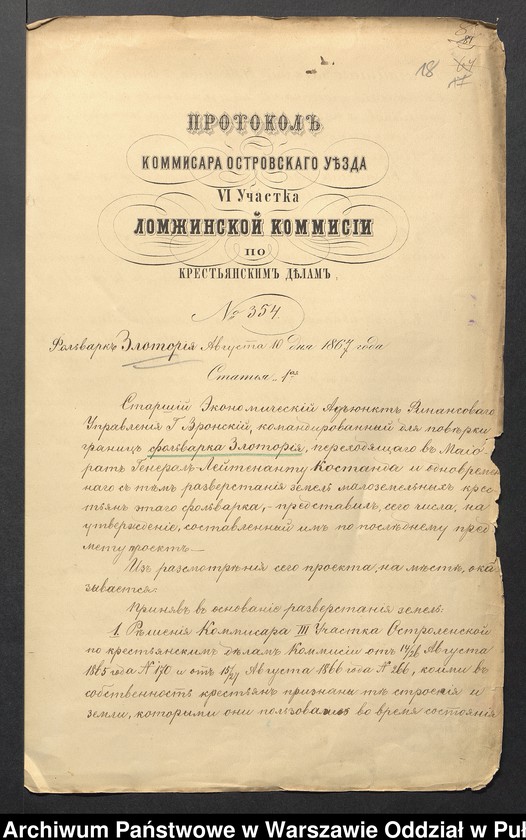 18
ПРОТОКОЛЪ
КОММИСАРА ОСТРОВСКАГО УѢЗДА
VI Участка
ЛОМЖИНСКОЙ КОММИСІИ
ПО
КРЕСТЬЯНСКИМЪ ДѢЛАМЪ,
№ 354.
Фольваркъ Злоторія Августа 10 дня 1867 года
Статья 1ая
Старшій Экономическій Адъюнктъ Финансоваго
Управленія Г. Вронскій, командированный для повѣрки
границъ фольварка Злоторія, переходящаго въ Маіо-
ратъ Генералъ-Лейтенанту Костанда и одновремен-
наго съ тѣмъ разверстанія земель малоземельныхъ крес-
тьянъ этаго фольварка, - представилъ, сего числа, на
утвержденіе, составленный имъ по послѣднему пред-
мету проектъ. —
Изъ разсмотрѣнія сего проекта, на мѣстѣ, ока-
зывается:
Принявъ въ основаніе разверстанія земель:
1. Рѣшенія Коммисара III Участка Остроленской
по крестьянскимъ дѣламъ Коммисіи отъ 14/26 Августа
1865 года № 190 и отъ 15/27 Августа 1866 года № 266, коими въ
собственность крестьянъ признаны тѣ строенія и
земли, которыми они пользовались во время состоянія
Archiwum Państwowe w Warszawie Oddział w Puł